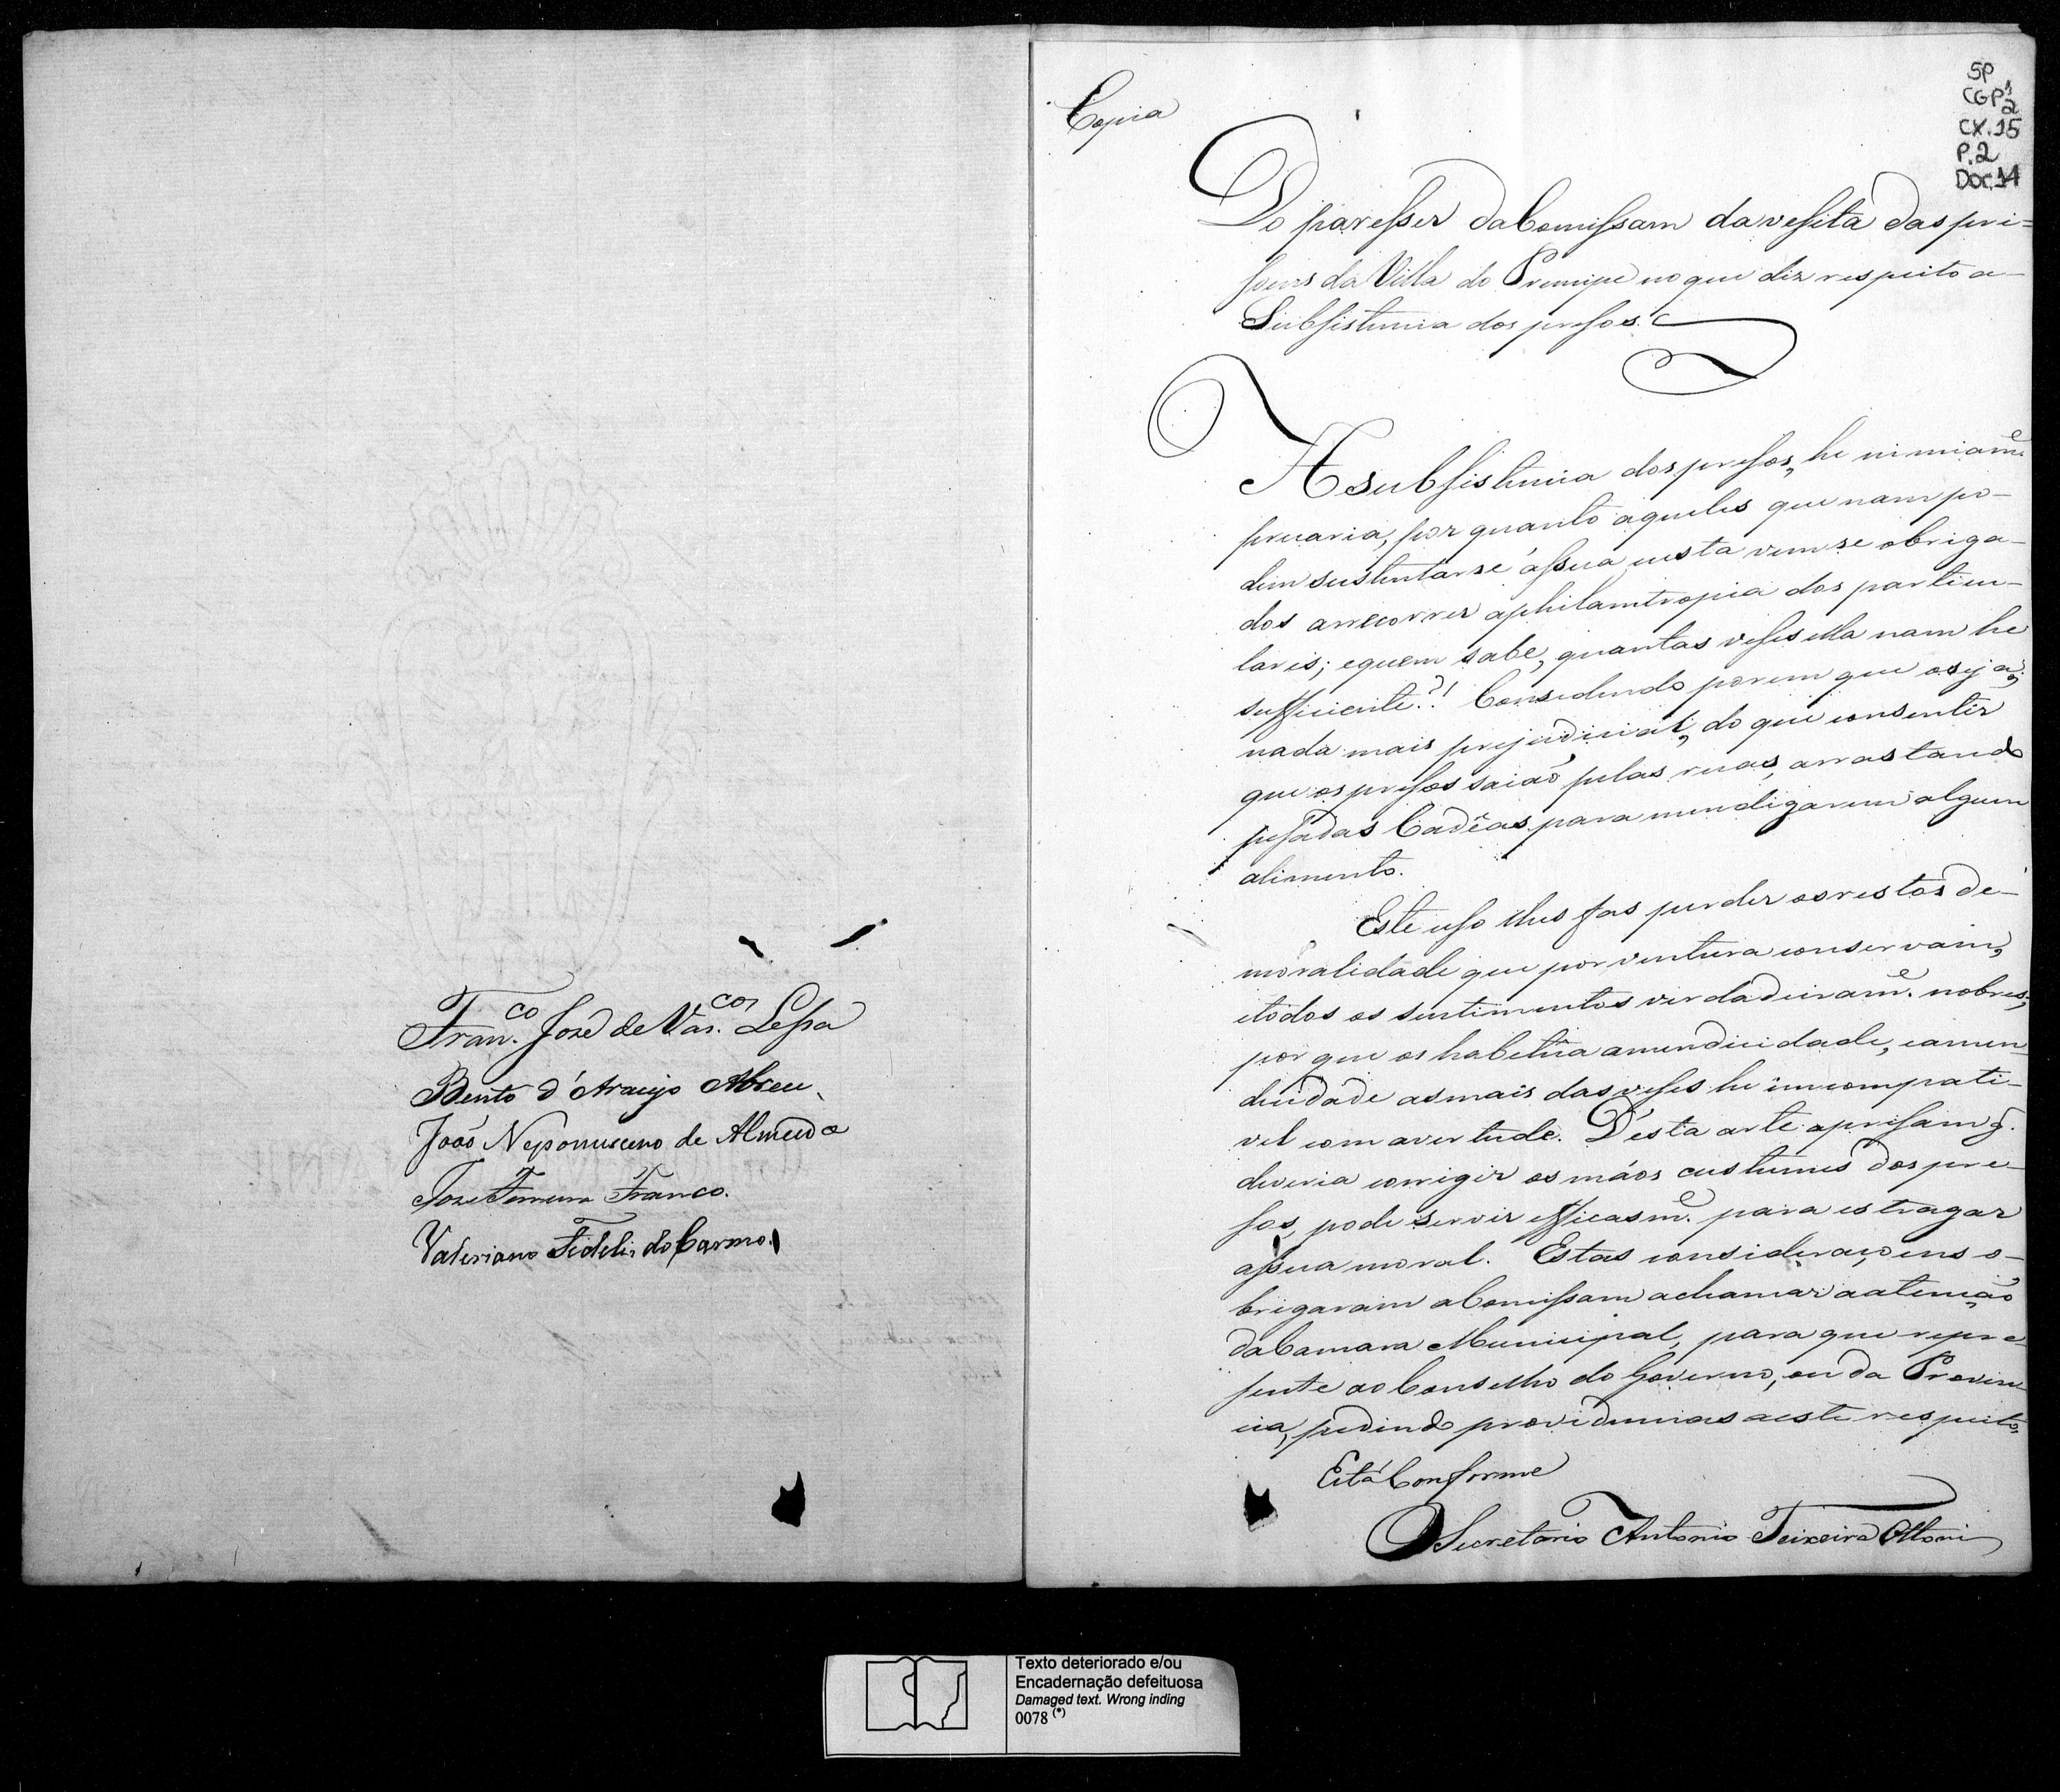 Fran.co José de Vas.cos Lessa
Bento d'Araujo Abreu
João Nepomusceno de Almeida
Joze Ferreira Franco.
Valeriano Fidelis do Carmo
Copia
SP
CGP 1
2
CX. 15
P. 2
Doc. 14
Do paresser da Comissam da vesita das pri=
soens da Villa do Prencipe no que diz respeito a
Subsistencia dos presos.
A subsistencia dos presos, he nimiam.e
precaria, por quanto aqueles que nam po-
dem sustentarse ássua custa vemse obriga-
dos arrecorrer aphilamtropia dos particu-
lares; equem sabe, quantas veses ella nam he
sufficiente?! Consedendo porem que oseja,
nada mais prejudicial, do que consentir
que os presos saião pelas ruas, arrastando
pesadas Cadêas para mendigarem algum
alimento.
Este uso lhes fas perder os restos de-
moralidade que porventura conservam,
etodos os sentimentos verdadeiram.e nobres,
por que os habetûa amendicidade, eamen-
dicidade asmais dasveses he imcompati-
vel com avertude. D'esta arte aprisam q.
deveria corrigir os máos custumes dos pre-
sos, pode servir efficasm.e para estragar
assua moral. Estas consideraçoens o-
brigaram a Comissam achamar aatenção
da Camara Municipal, para que repre-
sente ao Conselho do Governo, ou da Provin-
cia, pedindo providencias aeste respeito.
Está Conforme
O Secretario Antonio Teixeira Ottoni
Texto deteriorado e/ou
Encadernação defeituosa
Damaged text. Wrong inding
0078 (*)